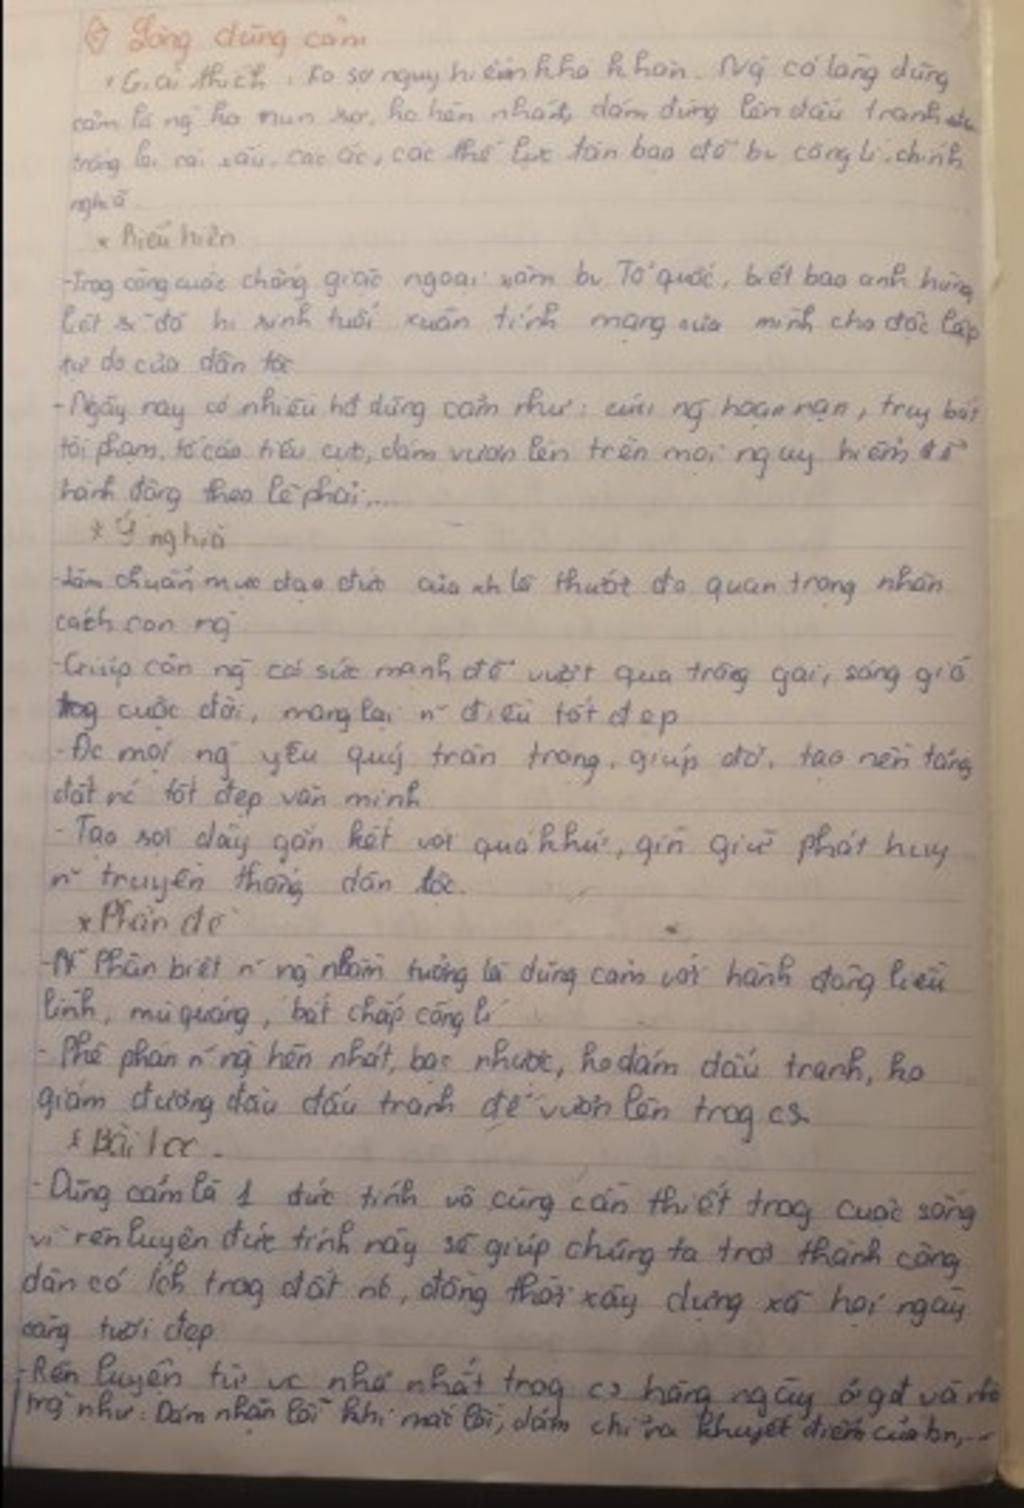 Lòng dũng cảm
* Giải thích: Ko sợ nguy hiểm khó khăn. Ng có lòng dũng
cảm là ng ko run sợ, ko hèn nhát, dám đứng lên đấu tranh
trống lại cái xấu, các ác, các thế lực tàn bạo để bv công lí, chính
nghĩa.
* Biểu hiện
- Trog công cuộc chống giặc ngoại xâm bv Tổ quốc, biết bao anh hùng
liệt sĩ đã hi sinh tuổi xuân tính mạng của mình cho độc lập
tự do của dân tộc
- Ngày nay có nhiều hđ dũng cảm như: cứu ng hoạn nạn, truy bắt
tội phạm, tố cáo tiêu cực, dám vươn lên trên mọi nguy hiểm để
hành động theo lẽ phải,...
* Ý nghĩa
- Làm chuẩn mực đạo đức của xh là thước đo quan trọng nhân
cách con ng
- Giúp con ng có sức mạnh để vượt qua trông gai, sóng gió
trog cuộc đời, mang lại n~ điều tốt đẹp
- Đc mọi ng yêu quý trân trọng, giúp đỡ, tạo nền tảng
đất nc tốt đẹp văn minh
- Tạo sợi dây gắn kết với quá khứ, gìn giữ phát huy
n~ truyền thống dân tộc.
* Phản đề
- Phân biệt n~ ng nhầm tưởng là dũng cảm với hành động liều
lĩnh, mù quáng, bất chấp công lí
- Phê phán n~ ng hèn nhát, bạc nhược, ko dám đấu tranh, ko
giám đương đầu đấu tranh để vươn lên trog cs.
* Bài học.
- Dũng cảm là 1 đức tính vô cùng cần thiết trog cuộc sống
vì rèn luyện đức tính này sẽ giúp chúng ta trở thành công
dân có ích trog đất nc, đồng thời xây dựng xã hội ngày
càng tươi đẹp
- Rèn luyện từ vc nhỏ nhất trog cs hàng ngày ở gđ và nhà
trg như: Dám nhận lỗi khi mắc lỗi, dám chỉ ra khuyết điểm của bn,...